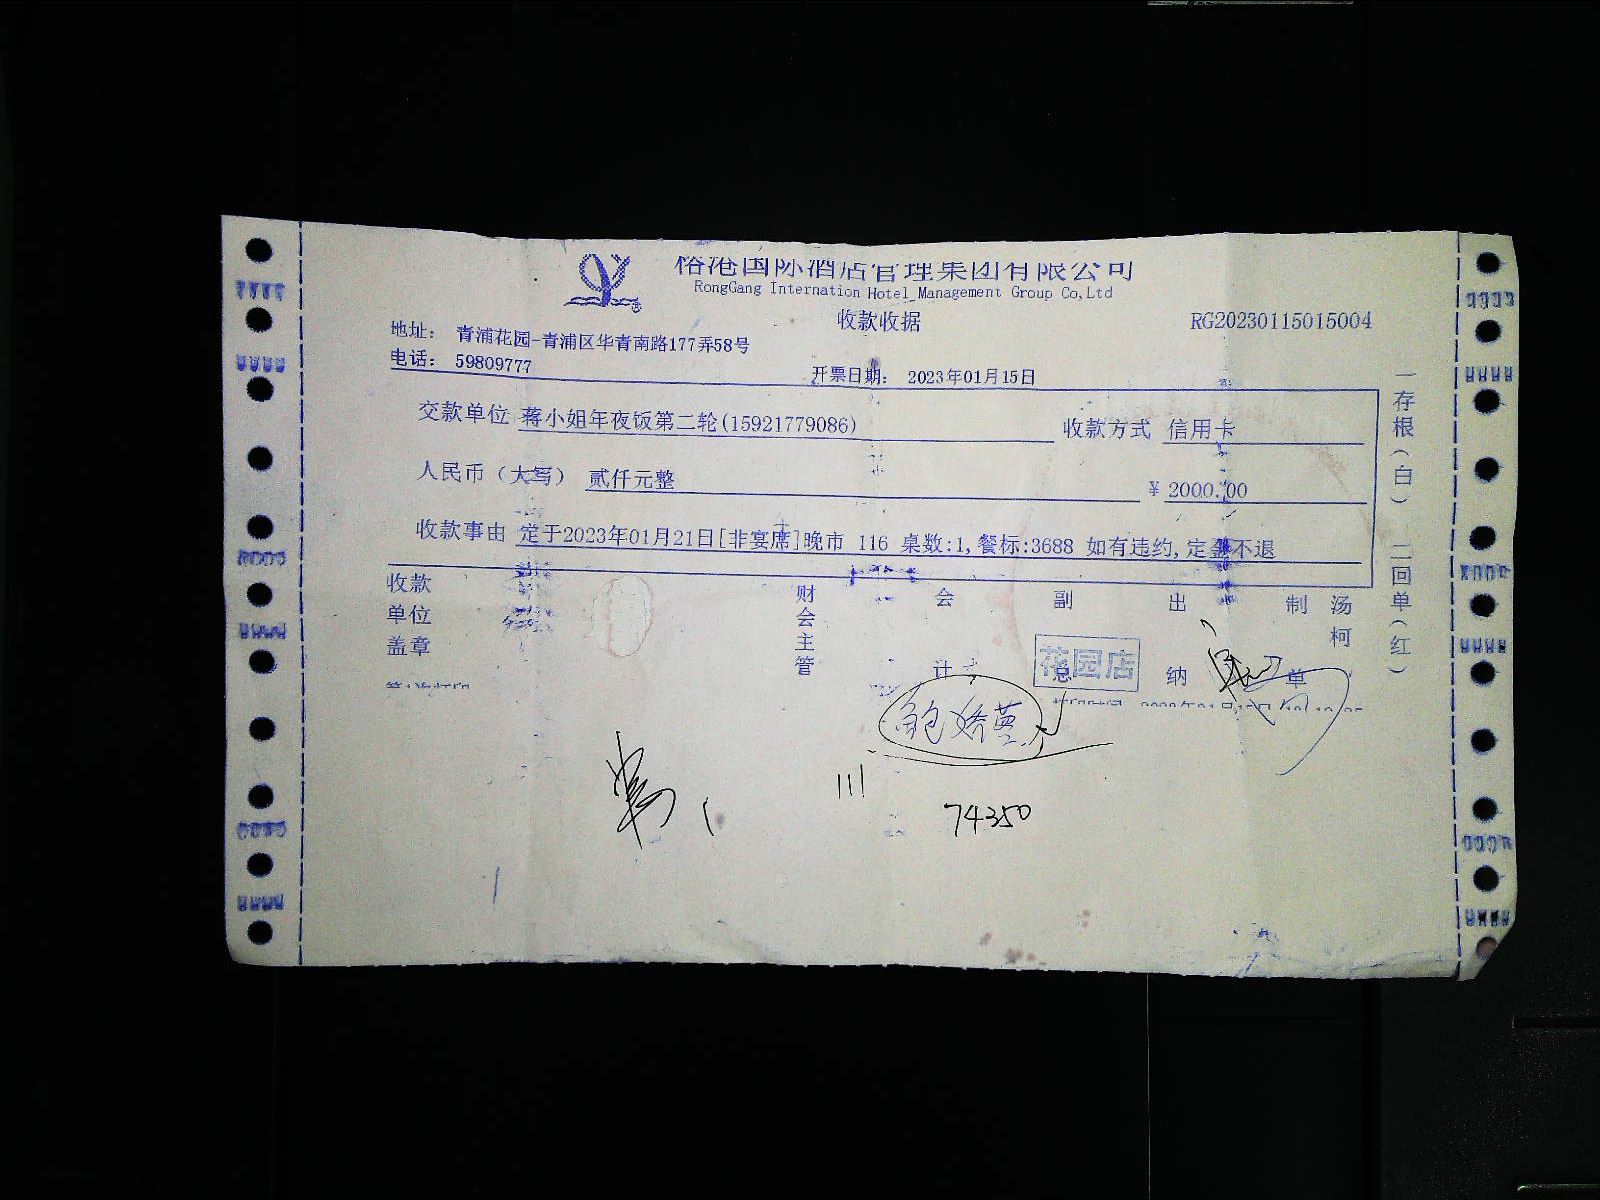 国际酒店管理集团有限公司
RongGang Internation Hotel Management Group Co,Ltd
收款收据
RG20230115015004
地址： 青浦花园-青浦区华青南路177弄58号
电话： 59809777
开票日期： 2023年01月15日
交款单位 蒋小姐年夜饭第二轮(15921779086) 收款方式 信用卡
人民币（大写） 贰仟元整 ¥ 2000.00
收款事由 定于2023年01月21日[非宴席]晚市 116 桌数:1,餐标:3688 如有违约,定金不退
收款单位盖章
财会主管
会计
副总
出纳
制单
汤柯
花园店
一存根（白） 二回单（红）
74350